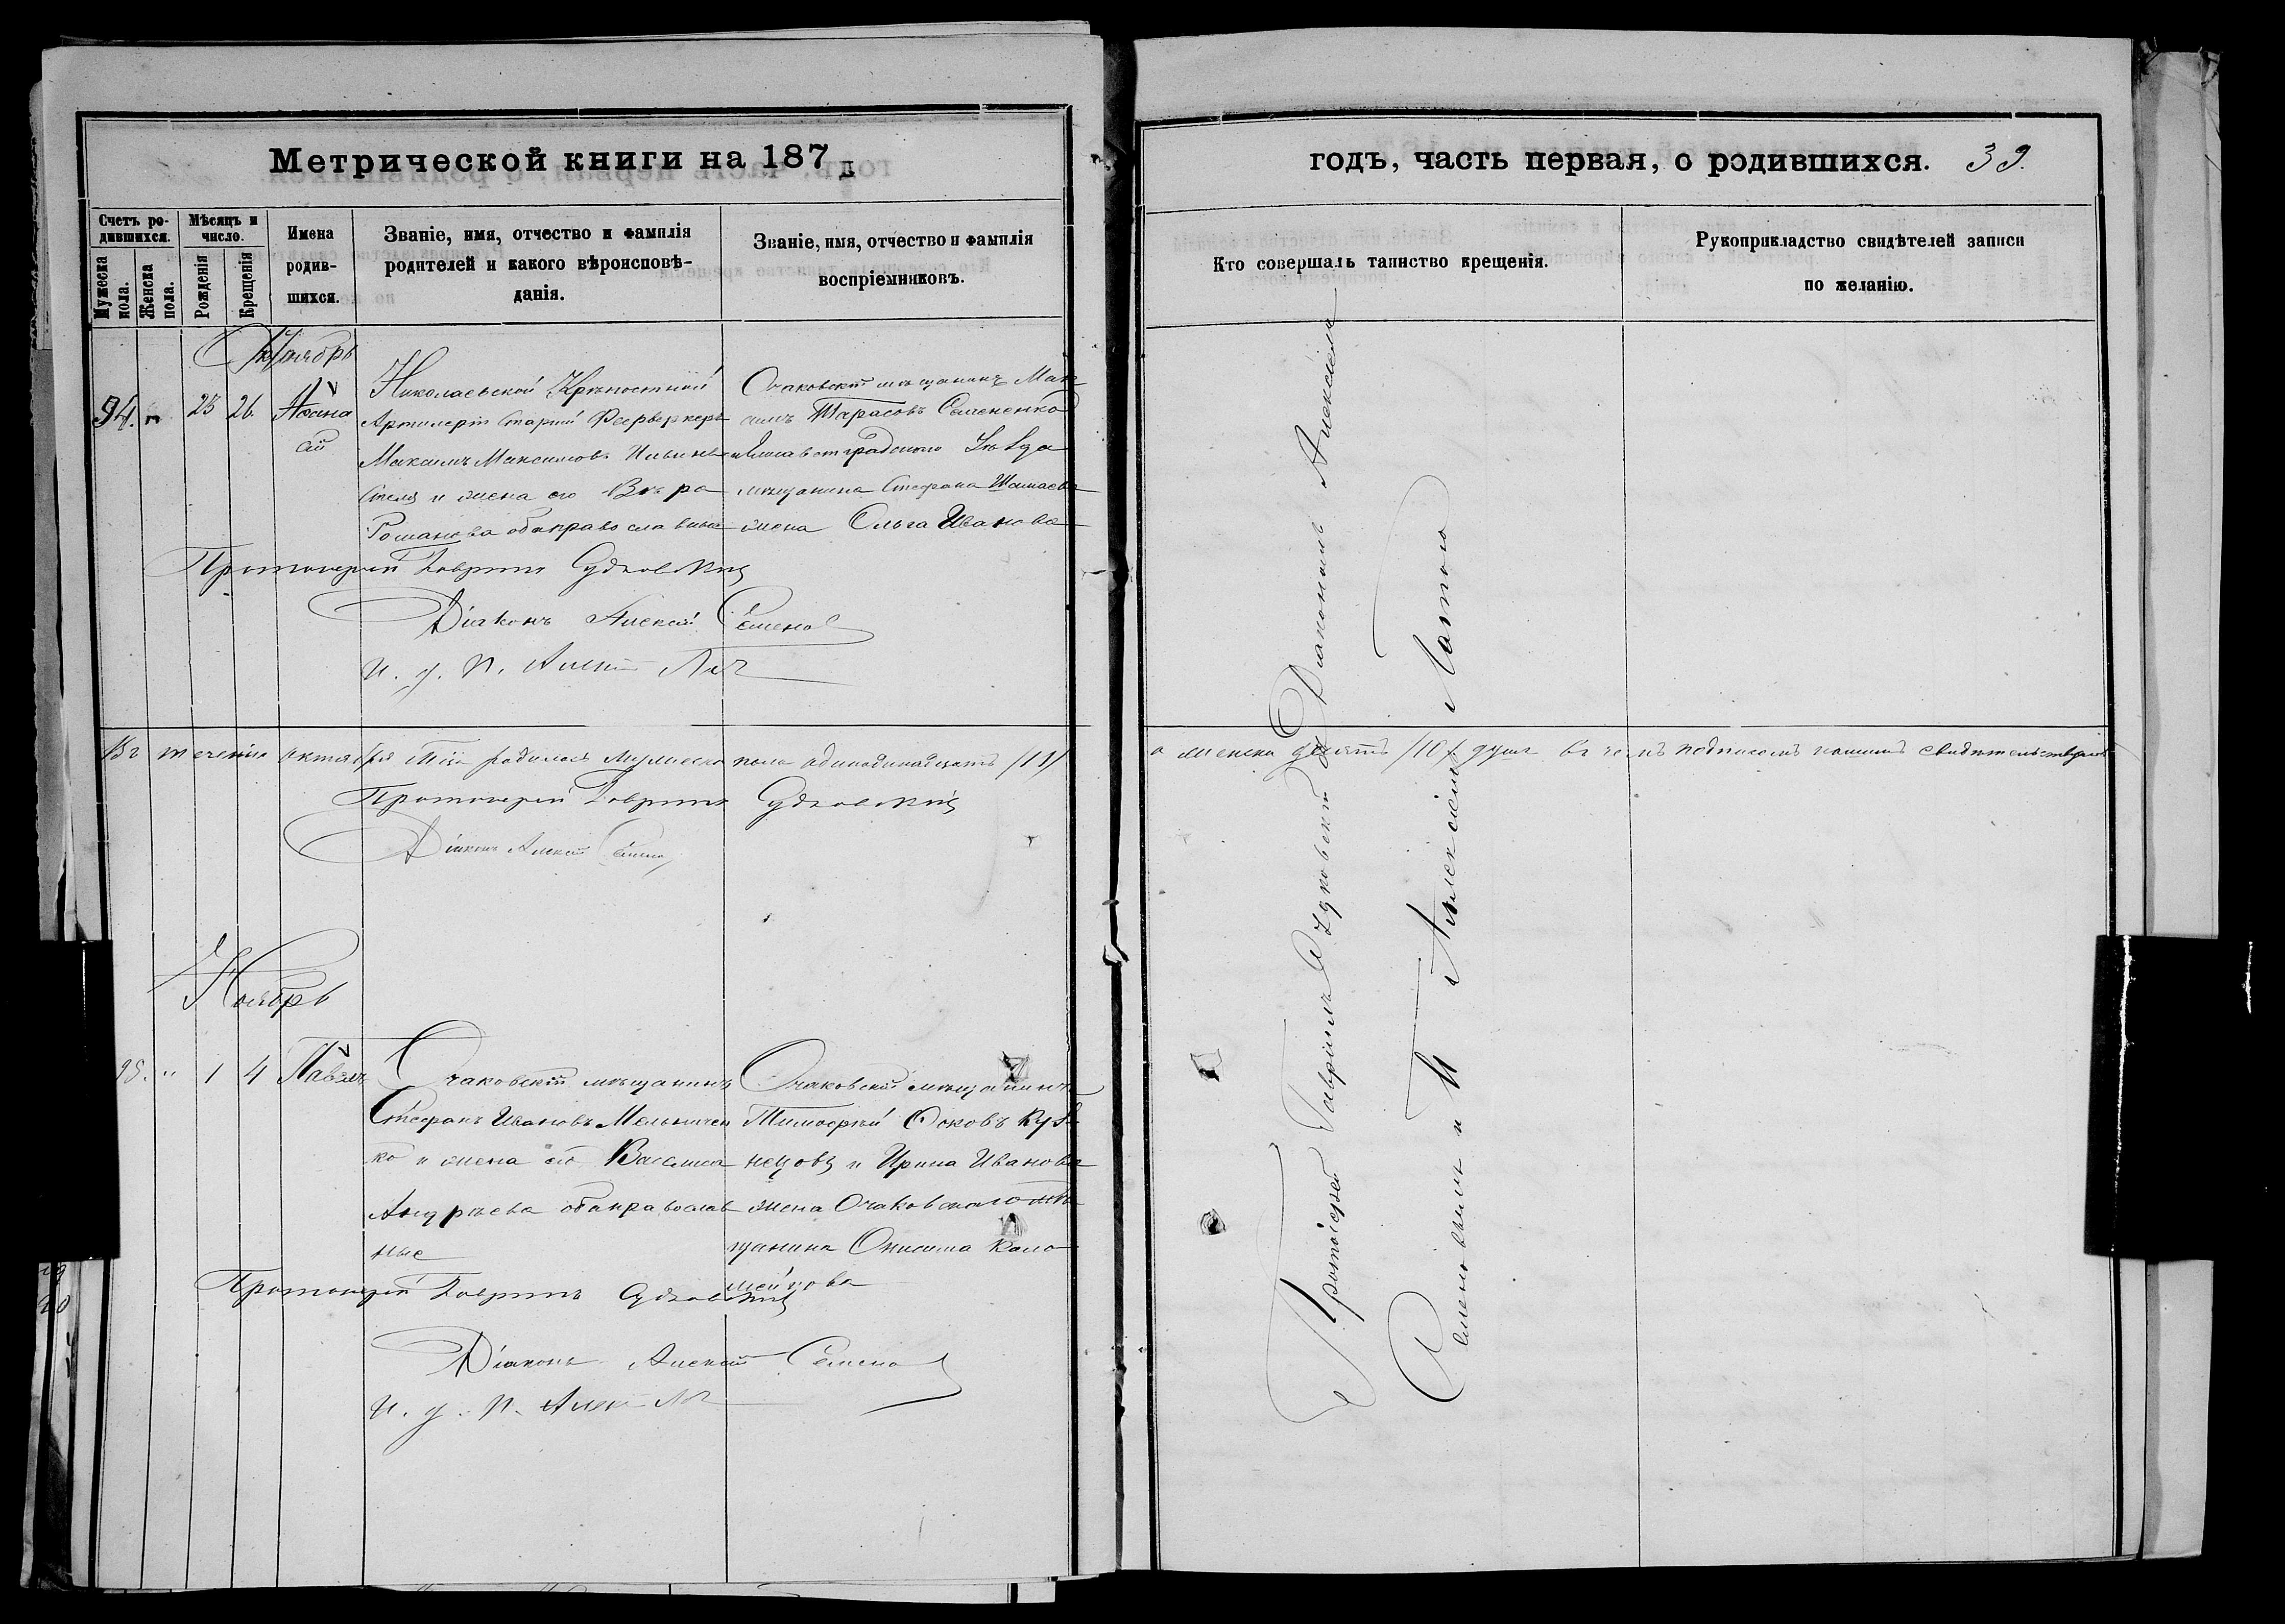 Метрической книги на 187
годъ, часть первая, о родившихся. 39.
Счетъ ро-
дившихся.
Мужеска
пола.
Женска
пола.
Мѣсяцъ и
число.
Рожденія
Крещенія
Имена
родив-
шихся.
Званіе, имя, отчество и фамилія
родителей и какого вѣроисповѣ-
данія.
Званіе, имя, отчество и фамилія
воспріемниковъ.
Кто совершалъ таинство крещенія.
Рукоприкладство свидѣтелей записи
по желанію.
94. 25 26
Николаевской Крѣпостной
Артилеріи Старшій Феерверкеръ
Максимъ Максимовъ
и жена его Вѣра
Романова оба православные
Очаковскій мѣщанинъ Мак
симъ Тарасовъ Семененко
и Елисаветградского
мѣщанина Стефана
жена Ольга Иванова
Протоіерей Гавріилъ Судковскій
Діаконъ Алексій Семенов
и. д. п.
Въ теченіи октября родилось мужеска пола /11/
а женска десять /10/ душъ въ чемъ подписомъ нашимъ свидѣтельствуемъ
Протоіерей Гавріилъ Судковскій
Діаконъ Алексій
Ноябрь
1 4 Павелъ
Очаковскій мѣщанинъ
Стефанъ Ивановъ Мельничен
ко и жена его Васса
Андрѣева оба православ
ные
Очаковскій мѣщанинъ
Тимофѣй Куз
нецовъ и Ирина Иванова
жена Очаковскаго мѣ
щанина Онисима Коло
мейцова
Протоіерей Гавріилъ Судковскій
Діаконъ Алексій Семенов
и. д. п.
Протоіерей Гавріилъ Судковскій съ Діакономъ Алексіемъ
Семеновымъ и Алексіемъ